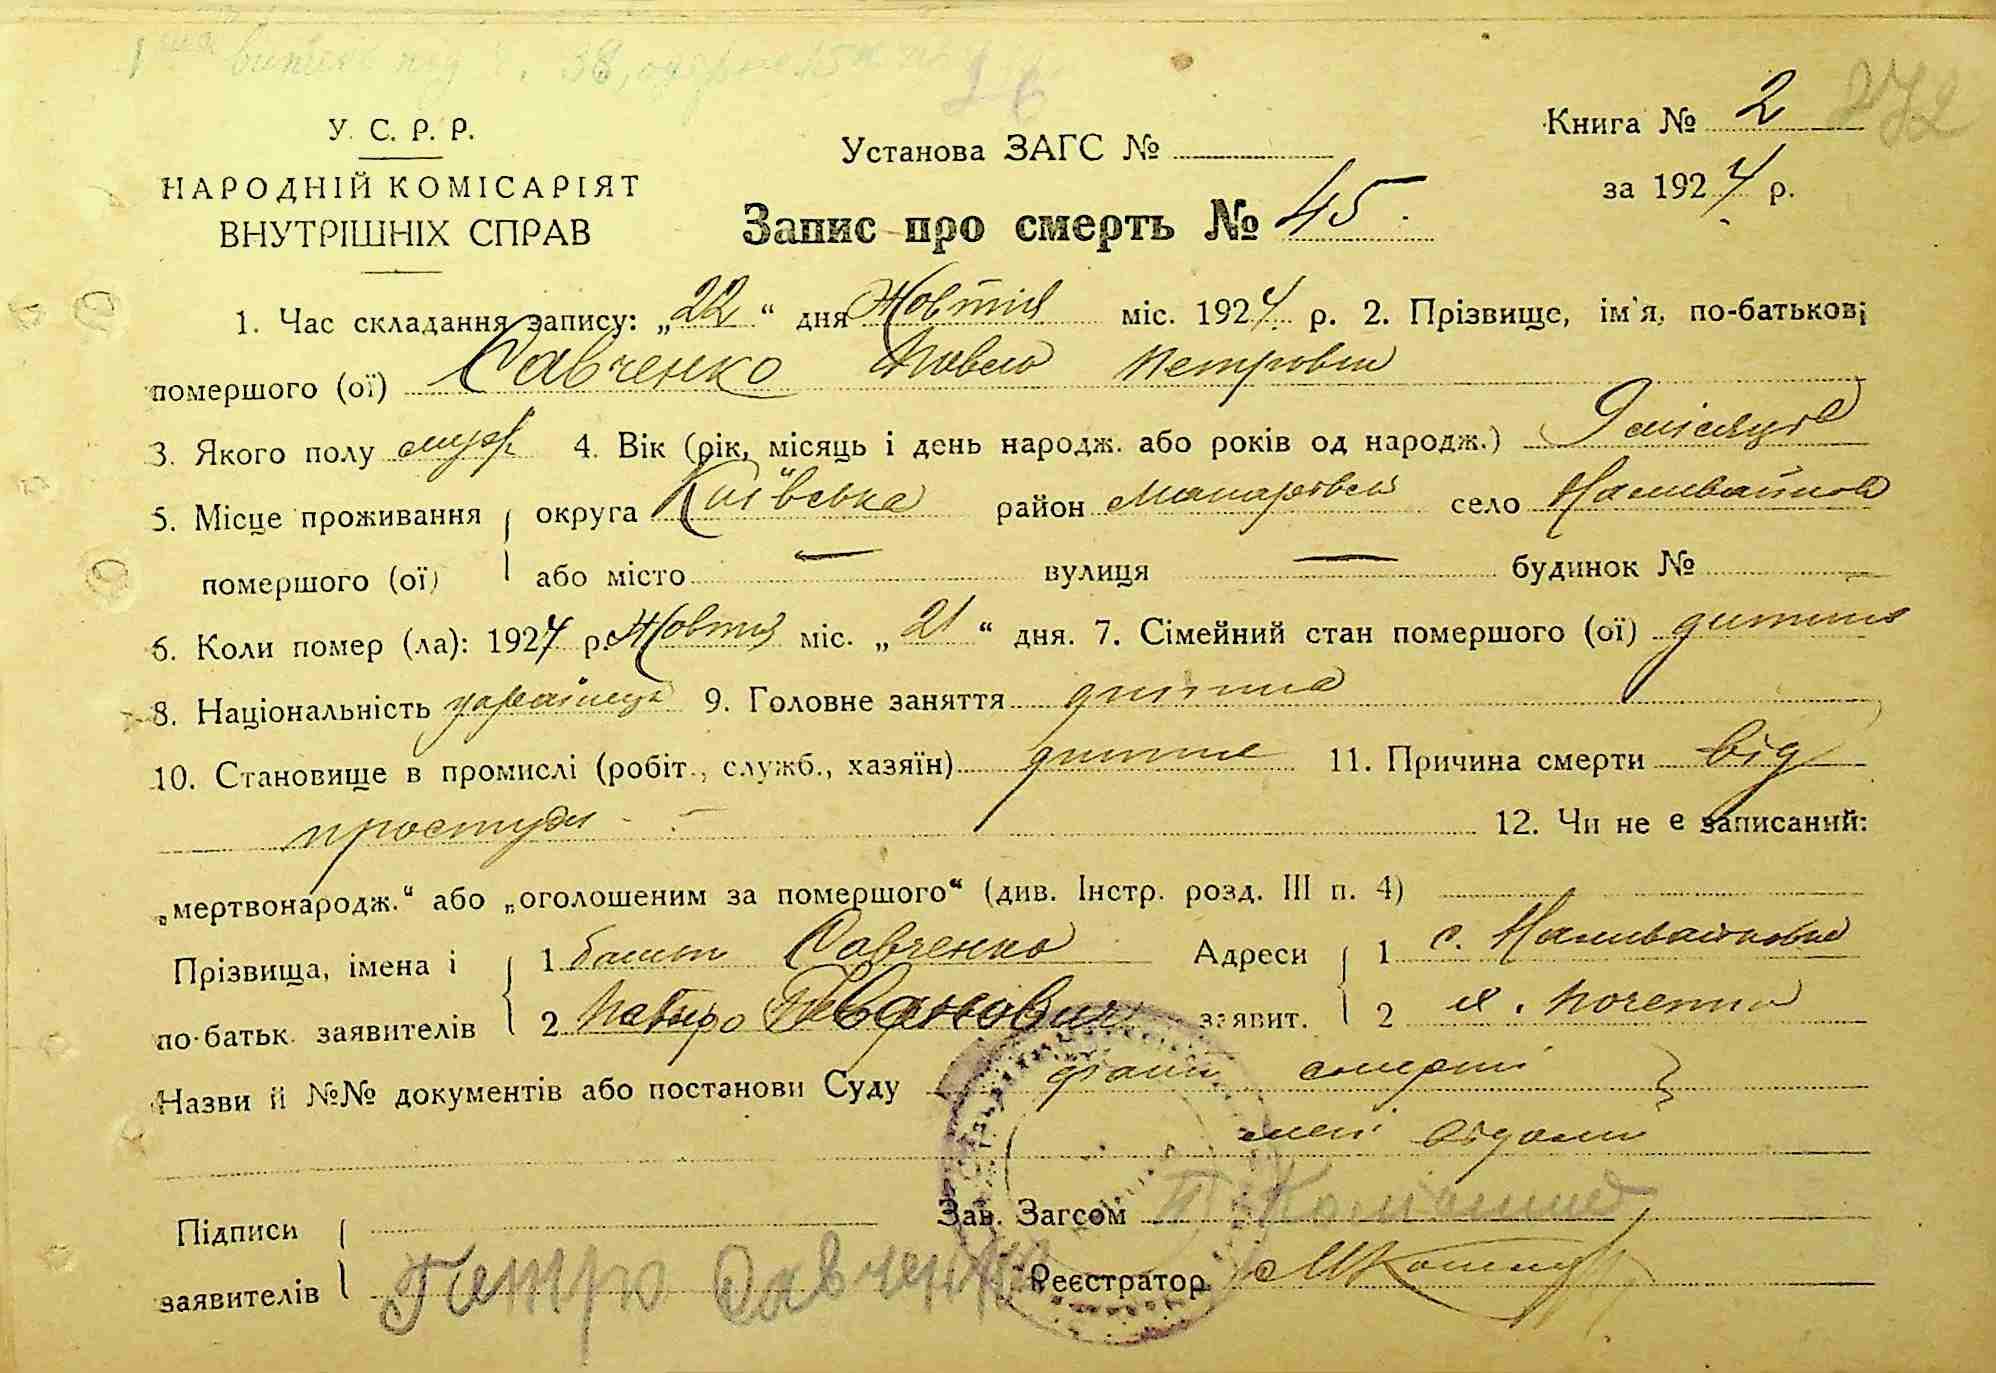 У. С. Р. Р.
НАРОДНІЙ КОМІСАРІЯТ
ВНУТРІШНІХ СПРАВ
Установа ЗАГС №
Книга № 2 272
за 1924 р.
Запис про смерть № 45.
1. Час складання запису: „22“ дня Жовтня міс. 1924 р. 2. Прізвище, ім'я, по-батькові
помершого (ої) Савченко Павло Петрович
3. Якого полу муж 4. Вік (рік, місяць і день народж. або років од народж.) 9 місяців
5. Місце проживання округа Київська район Макарівськ село Наливайков
помершого (ої) або місто — вулиця — будинок №
6. Коли помер (ла): 1924 р. Жовтня міс. „21“ дня. 7. Сімейний стан помершого (ої) дитина
8. Національність українець 9. Головне заняття дитина
10. Становище в промислі (робіт., служб., хазяїн) дитина 11. Причина смерти від
простуди 12. Чи не є записаний:
„мертвонародж.“ або „оголошеним за помершого“ (див. Інстр. розд. III п. 4)
Прізвища, імена і 1 Савченко Адреси 1 с. Наливайковка
по-батьк. заявителів 2 Петро Іванович заявит. 2
Назви й №№ документів або постанови Суду смерті
мені відомі
Підписи Зав. Загсом
заявителів Петро Савченко Реєстратор